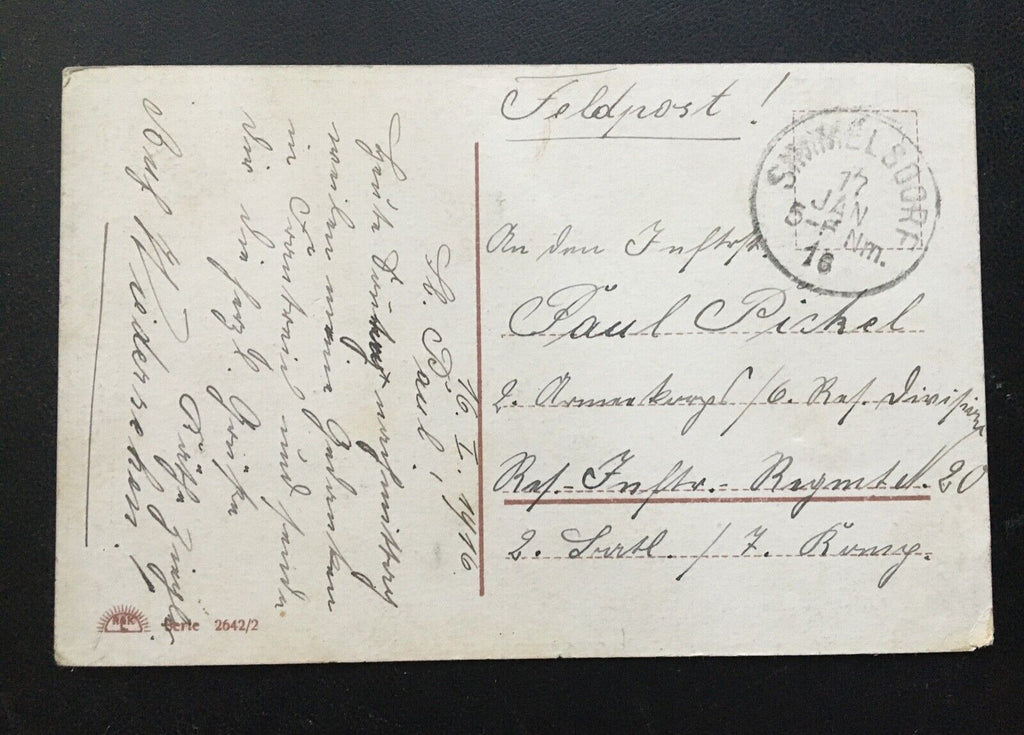 Feldpost!
SIMMELSDORF
17
JAN
5-6 Nm.
16
An den Infstr.
Paul Pickel
2. Armeekorps/6. Res. Division
Res.-Infstr.-Regmt N. 20
2. Batl. / 7. Komp.
16. I. 1916.
St. Paul,
Heute Sonntag nachmittag
weilen meine Gedanken
in Frankreich und sende
Dir die herzl. Grüße
Auf Wiedersehen!
R&K
L
Serie 2642/2